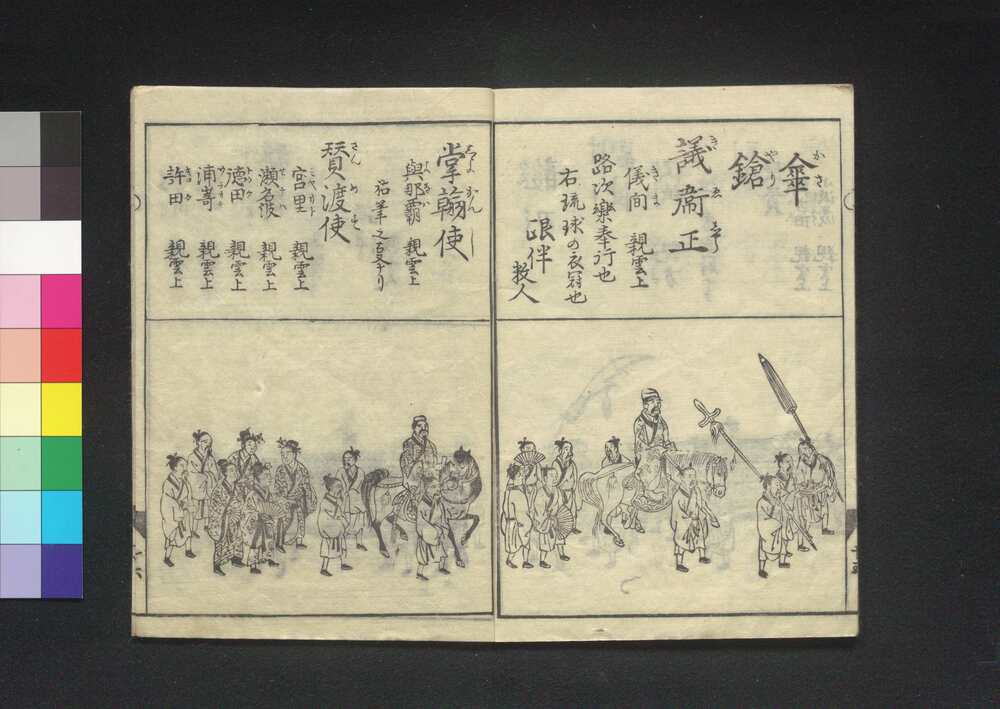 傘
鎗
儀衛正
儀間 親雲上
路次樂奉行也
右琉球の衣冠也
跟伴 数人
掌翰使
與那覇 親雲上
賛渡使
宮里 親雲上
瀬名波 親雲上
德田 親雲上
浦嵜 親雲上
許田 親雲上